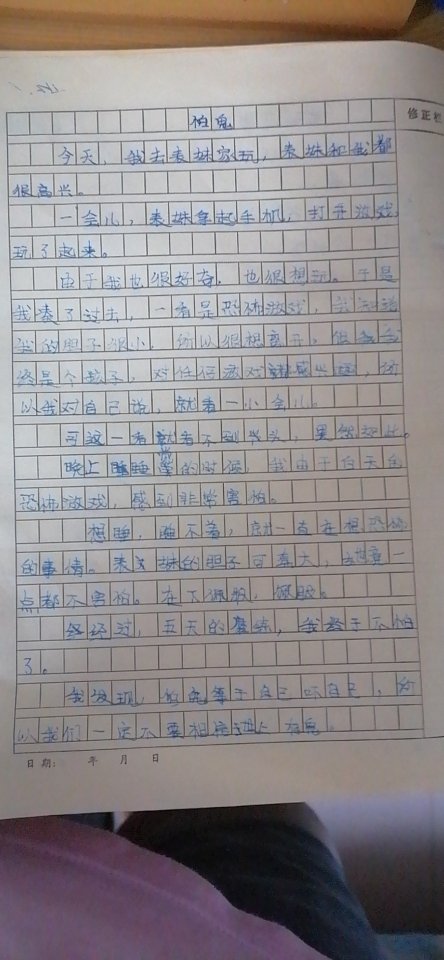 修正栏
怕鬼
今天，我去表妹家玩，表妹和我都
很高兴。
一会儿，表妹拿起手机，打开游戏
玩了起来。
由于我也很好奇，也很想玩。于是
我凑了过去，一看是恐怖游戏，我知道
我的胆子很小，所以很想离开，但我
终是个孩子，对任何游戏都感兴趣，所
以我对自己说，就看一小会儿。
可这一看就看不到头，果然如此。
晚上睡觉的时候，我由于白天的
恐怖游戏，感到非常害怕。
想睡，睡不着，就一直在想恐怖
的事情。表妹的胆子可真大，一
点都不害怕。在下佩服，佩服。
经过，五天的磨练，我终于不怕
了。
我发现，怕鬼等于自己吓自己，所
以我们一定不要相信世上有鬼。
日期： 年 月 日